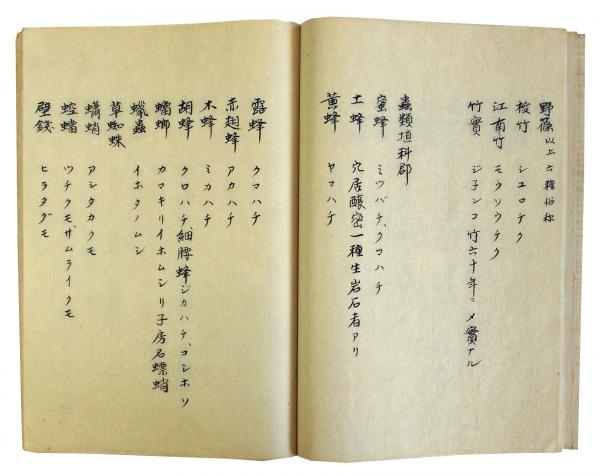 野篠 以上六種俗称
椶竹 シユロチク
江南竹 モウソウチク
竹實 ジネンコ竹六十年ニメ實ナル
蟲類埴科郡
蜜蜂 ミツバチ、クマハチ
土蜂 穴居醸蜜一種生岩石者アリ
黄蜂 ヤマハチ
露蜂 クマハチ
赤翅蜂 アカハチ
木蜂 ミカハチ
胡蜂 クロハチ細腰蜂ジカハチ、コシホソ
蟷螂 カマキリイホムシリ子房名螵蛸
蠟蟲 イホタノムシ
草蜘蛛
蠨蛸 アシタカクモ
ツチクモザムライクモ
壁錢 ヒラタグモ